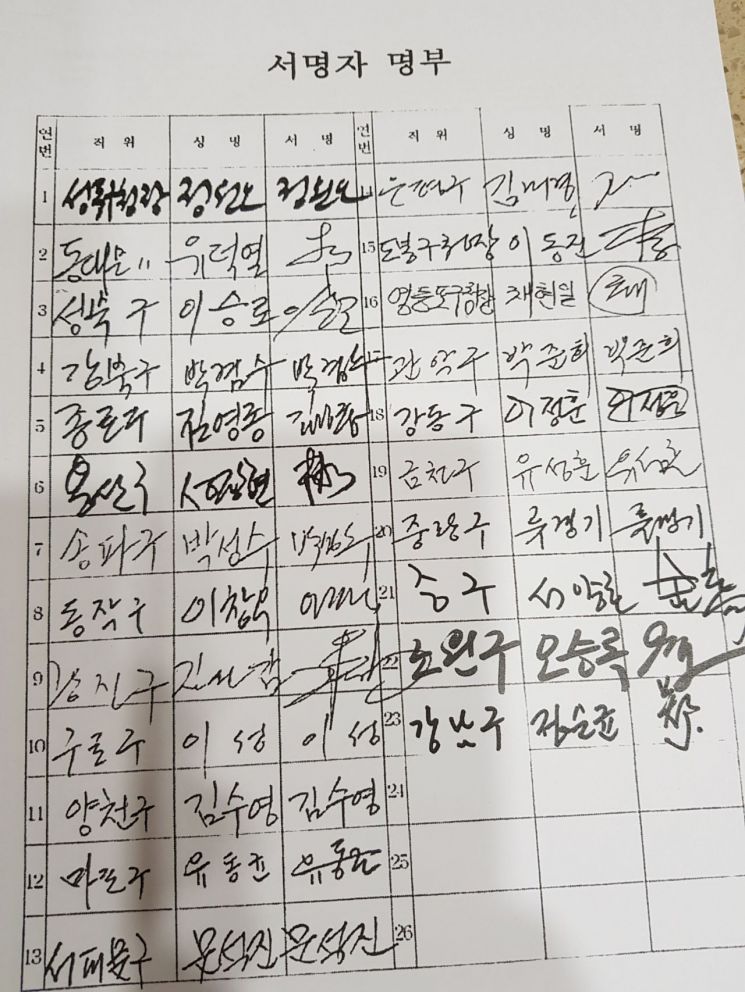 서명자 명부
연번 직위 성명 서명 연번 직위 성명 서명
1
2 동대문 〃 유덕열
3 성북구 이승로
4 강북구 박겸수 박겸수
5 종로구 김영종
6 용산구
7 송파구 박성수 박성수
8 동작구 이창우
9 광진구
10 구로구 이성 이성
11 양천구 김수영 김수영
12 마포구 유동균 유동균
13 서대문구 문석진 문석진
14 은평구 김미경
15 도봉구청장 이동진
16 영등포구청장 채현일
관악구 박준희 박준희
18 강동구 이정훈 이정훈
19 금천구 유성훈 유성훈
20 중랑구 류경기 류경기
21 중구 서양호
22 노원구 오승록
23 강남구 정순균
24
25
26